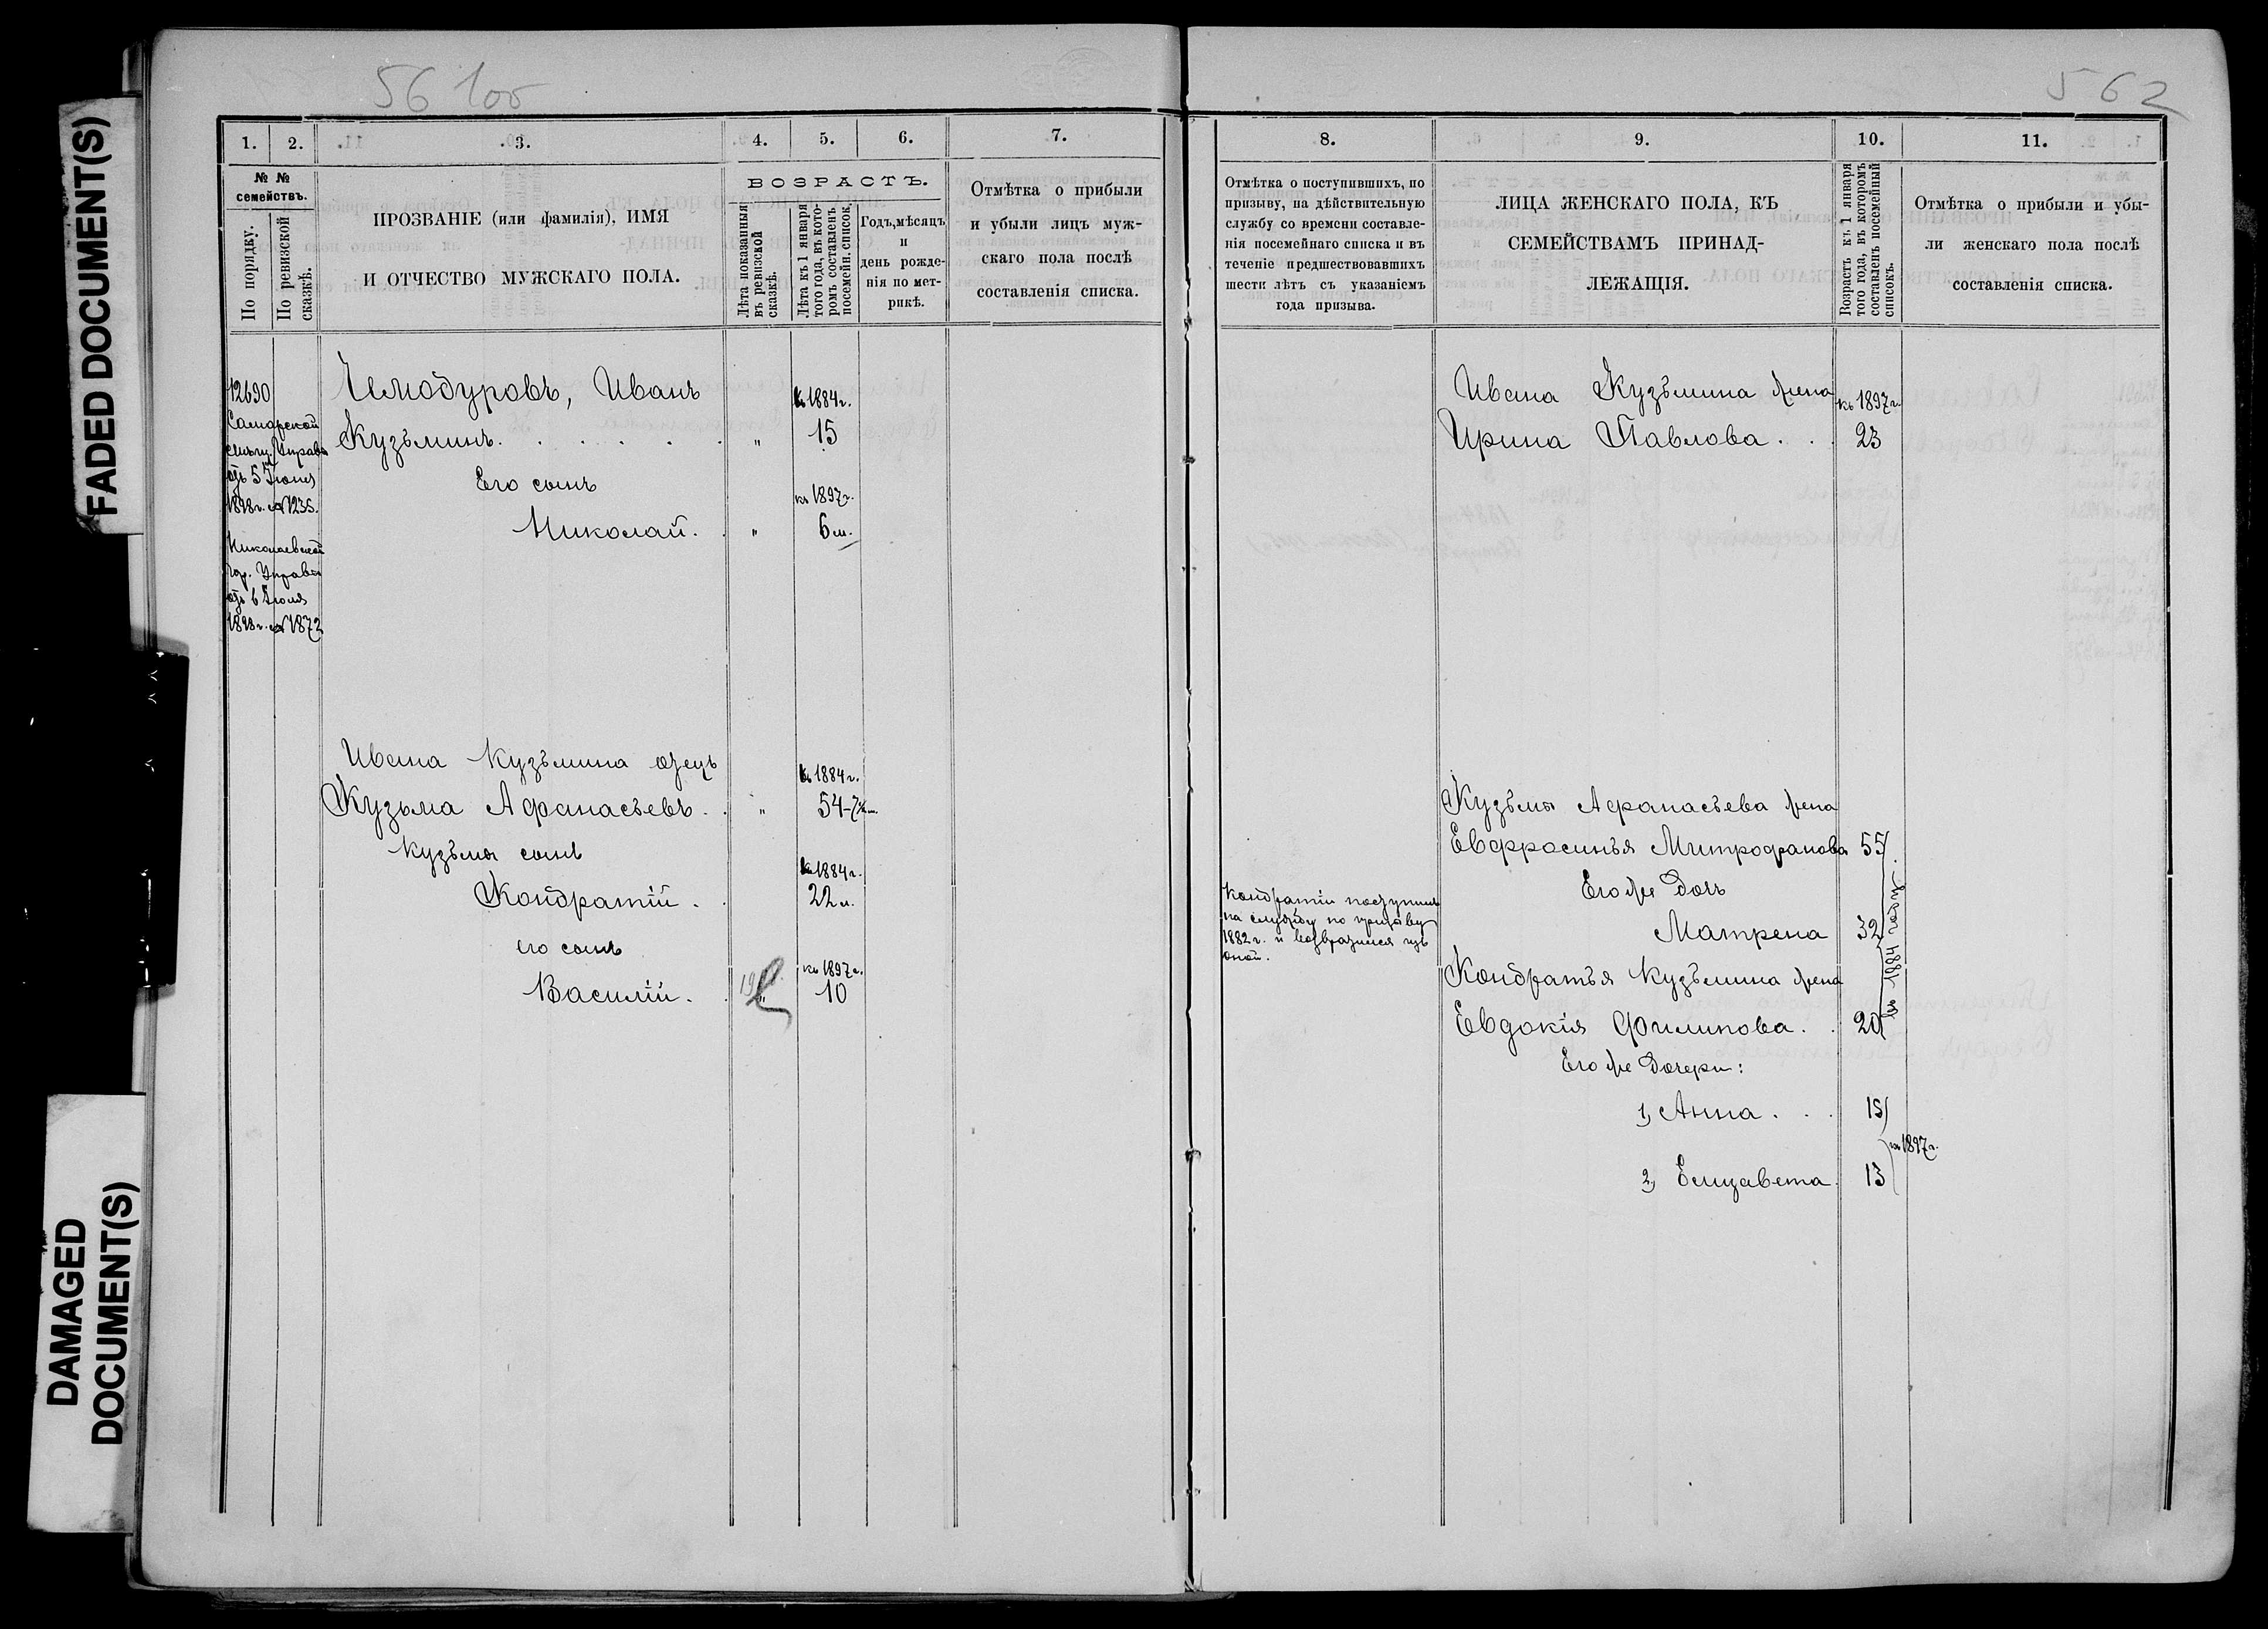 FADED DOCUMENT(S)
DAMAGED
DOCUMENT(S)
56 100
1. 2. 3. 4. 5. 6. 7.
№ №
семействъ.
По порядку.
По ревизской
сказкѣ.
ПРОЗВАНІЕ (или фамилія), ИМЯ
И ОТЧЕСТВО МУЖСКАГО ПОЛА.
ВОЗРАСТЪ.
Лѣта показанныя
въ ревизской
сказкѣ.
Лѣта къ 1 января
того года, въ кото-
ромъ составленъ
посемейн. список.
Годъ, мѣсяцъ
и
день рожде-
нія по мет-
рикѣ.
Отмѣтка о прибыли
и убыли лицъ муж-
скаго пола послѣ
составленія списка.
12690
Самарской
Управы
отъ 5 Іюня
1898 г. № 1235.
Николаевской
Гор. Управы
отъ 6 Іюля
1898 г. № 1872
Чемодуровъ, Иванъ
къ 1884 г.
Кузьминъ. . . . . . . " 15
Его сынъ
къ 1897 г.
Николай. . " 6 м.
Ивана Кузьмина отецъ
къ 1884 г.
Кузьма Афанасьевъ. . " 54-7
Кузьмы сынъ
къ 1884 г.
Кондратій . . 22 л.
его сынъ
къ 1897 г.
Василій. . " 10
562
8. 9. 10. 11.
Отмѣтка о поступившихъ, по
призыву, на дѣйствительную
службу со времени составле-
нія посемейнаго списка и въ
теченіе предшествовавшихъ
шести лѣтъ съ указаніемъ
года призыва.
ЛИЦА ЖЕНСКАГО ПОЛА, КЪ
СЕМЕЙСТВАМЪ ПРИНАД-
ЛЕЖАЩІЯ.
Возрастъ къ 1 января
того года, въ которомъ
составленъ посемейный
списокъ.
Отмѣтка о прибыли и убы-
ли женскаго пола послѣ
составленія списка.
Ивана Кузьмина жена
къ 1897 г.
Ирина Павлова. . . 23
Кузьмы Афанасьева жена
Евфросинья Митрофанова 55
Его же дочь
Матрена 32
Кондратій поступилъ
на службу по призыву
1882 г. и возвратился изъ
оной.
Кондратья Кузьмина жена
Евдокія Филипова. . 20
къ 1884 году
Его же дочери:
1, Анна . . . 15
2, Елизавета. 13
къ 1897 г.